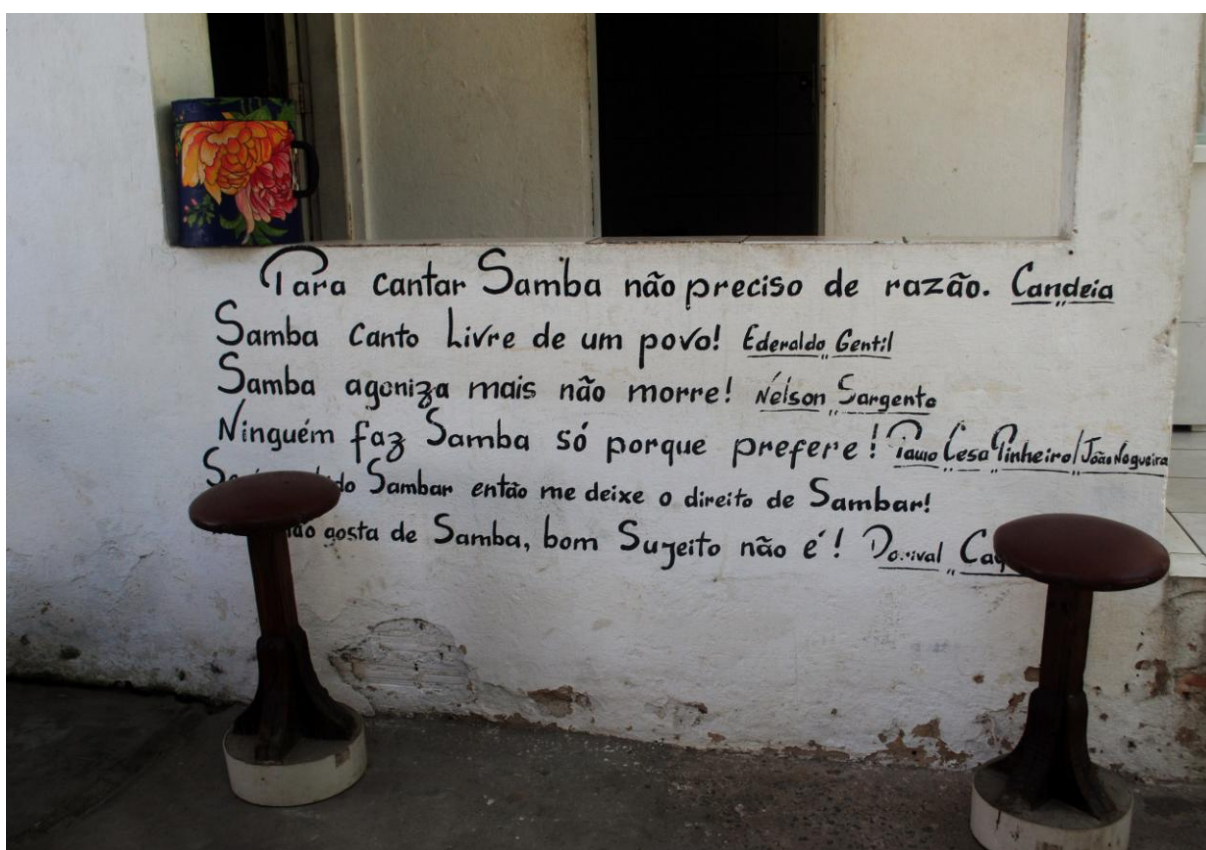 Para cantar Samba não preciso de razão. Candeia
Samba Canto Livre de um povo! Ederaldo Gentil
Samba agoniza mais não morre! Nelson Sargento
Ninguém faz Samba só porque prefere! Paulo Cesa Pinheiro/João Nogueira
Sambar então me deixe o direito de Sambar!
não gosta de Samba, bom Sugeito não é! Dorival